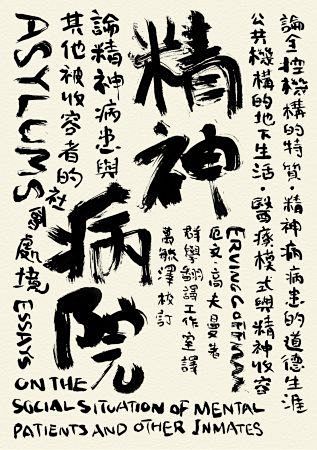 論全控機構的特質・精神病病患的道德生涯
公共機構的地下生活・醫療模式與精神收容
精神
病院
ERVING GOFFMAN
厄文・高夫曼著
群學翻譯工作室譯
萬毓澤校訂
論精神病患與
其他被收容者的
社會處境
ASYLUMS
ESSAYS
ON THE
SOCIAL SITUATION OF MENTAL
PATIENTS AND OTHER INMATES